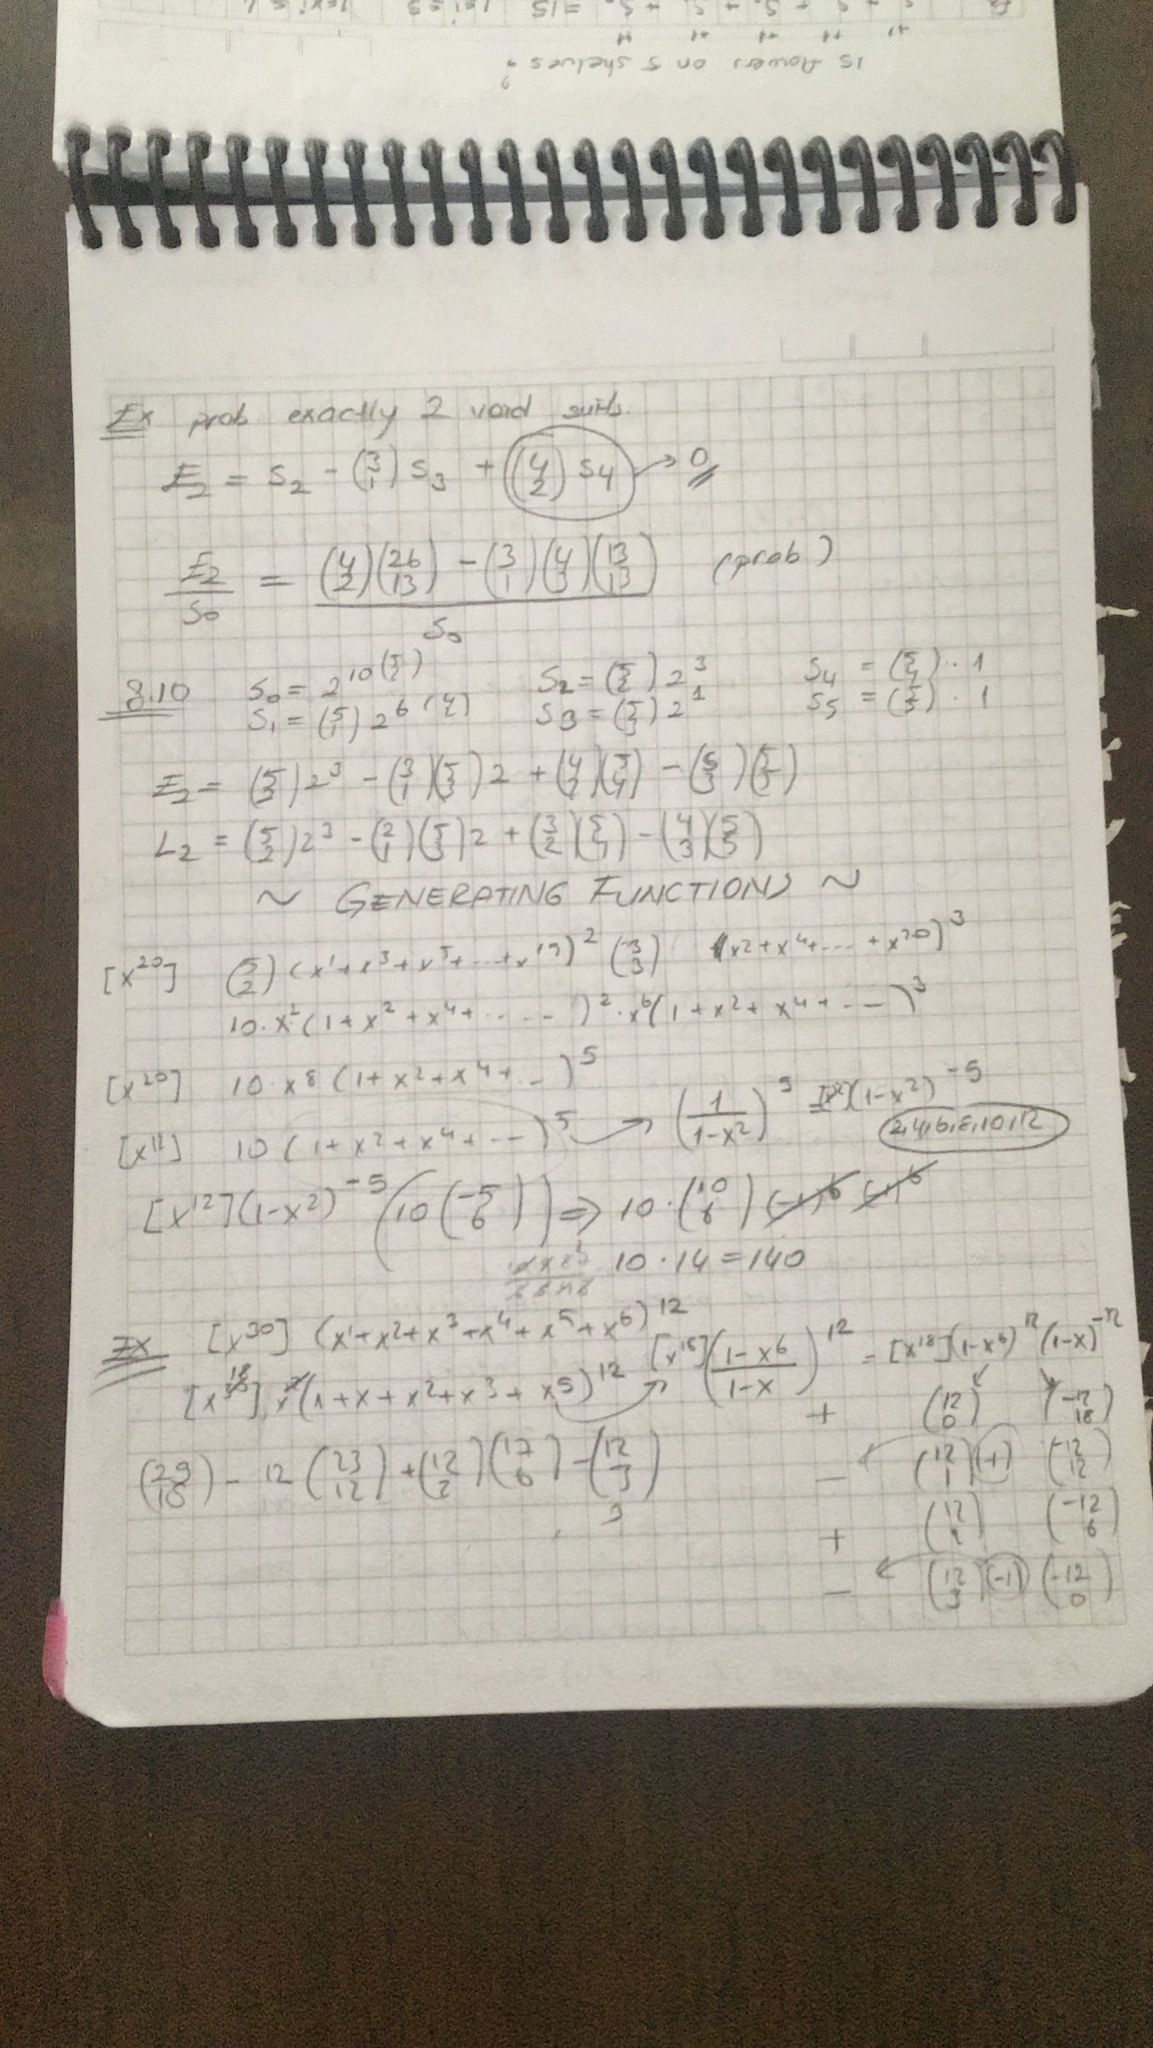 15 flowers on 5 shelves?
Ex prob exactly 2 void suits.
E₂ = S₂ - (3 1) S₃ + (4 2) S₄ → 0
E₂/S₀ = ((4 2)(26 13) - (3 1)(4 3)(13 13))/S₀ (prob)
8.10 S₀ = 2^10 (5 2) S₂ = (5 2) 2³ S₄ = (5 4) · 1
S₁ = (5 1) 2^6 (4 2) S₃ = (5 3) 2¹ S₅ = (5 5) · 1
E₂ = (5 2) 2³ - (3 1)(5 3) 2 + (4 2)(5 4) - (5 3)(5 5)
L₂ = (5 2) 2³ - (2 1)(5 3) 2 + (3 2)(5 4) - (4 3)(5 5)
~ GENERATING FUNCTIONS ~
[x^20] (5 2) (x^1 + x^3 + x^5 + ... + x^19)^2 (3 3) (x^2 + x^4 + ... + x^20)^3
10 · x^2 (1 + x^2 + x^4 + ......)^2 · x^6 (1 + x^2 + x^4 + ...)^3
[x^20] 10 · x^8 (1 + x^2 + x^4 + ...)^5
[x^12] 10 (1 + x^2 + x^4 + ...)^5 → (1/(1-x^2))^5 = (1-x^2)^-5
2,4,6,8,10,12
[x^12] (1-x^2)^-5 (10 (-5 6)) ⇒ 10 · (10 6) (-1)^6 (-1)^6
10 · 14 = 140
Ex [x^30] (x^1 + x^2 + x^3 + x^4 + x^5 + x^6)^12
[x^18] (1 + x + x^2 + x^3 + x^5)^12 → [x^18] ((1-x^6)/(1-x))^12 = [x^18] (1-x^6)^12 (1-x)^-12
+ (12 0) (-12 18)
(29 18) - 12 (23 12) + (12 2)(17 6) - (12 3)
- (12 1) (+) (-12 12)
+ (12 2) (-12 6)
- (12 3) (-1) (-12 0)